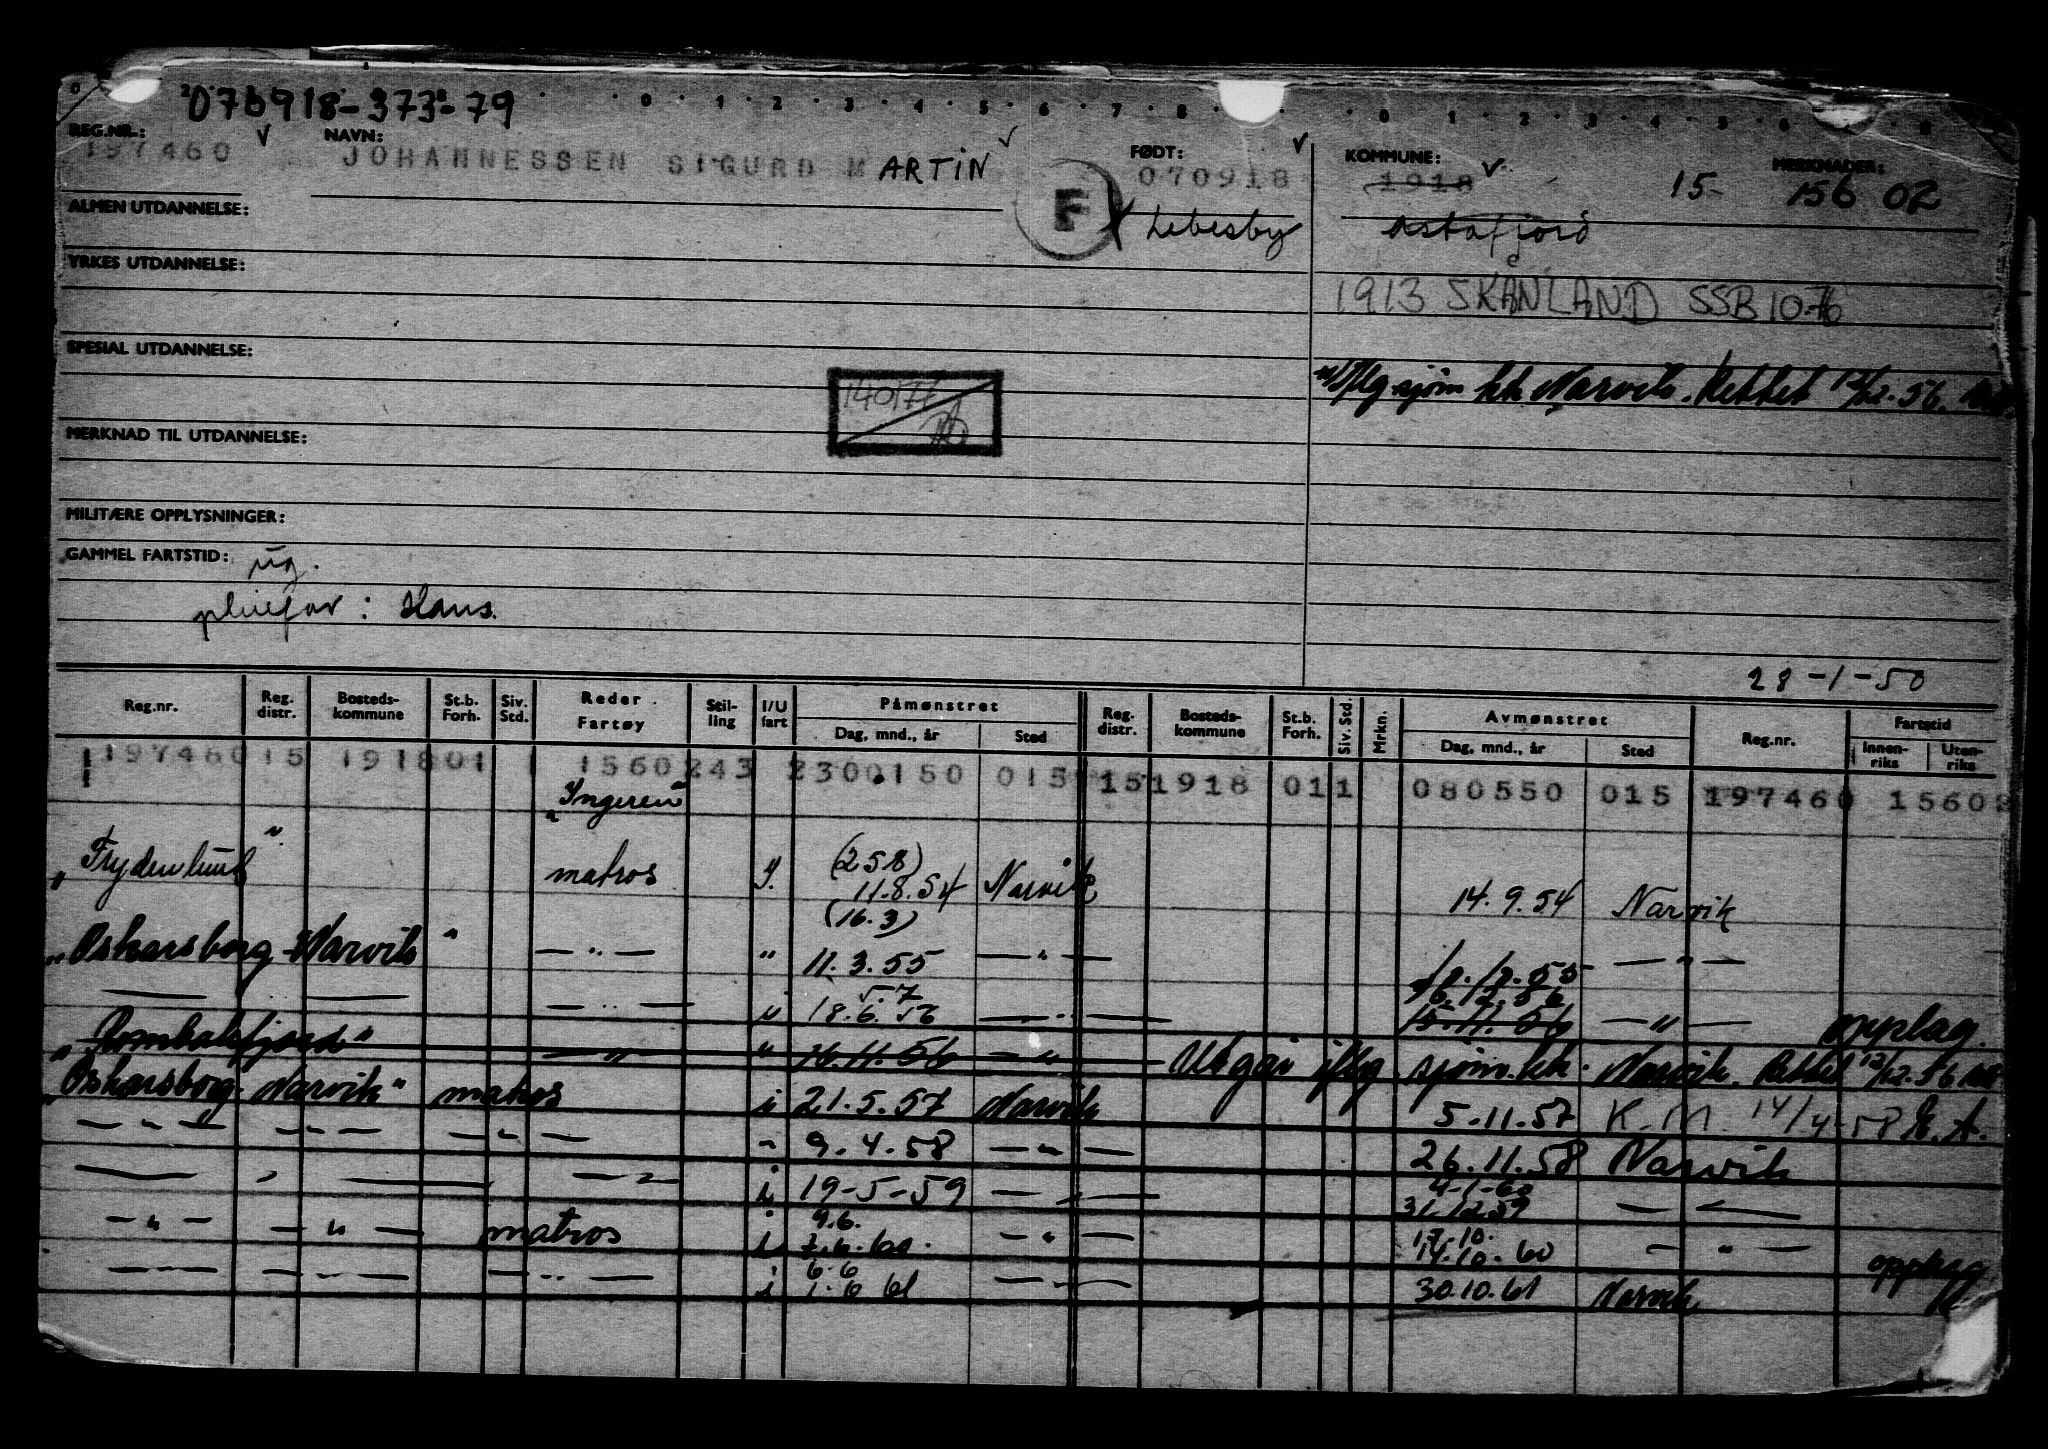 070918-373-79
REG.NR.: NAVN: FØDT: KOMMUNE: MERKNADER:
197460 JOHANNESSEN SIGURD MARTIN 070918 1918 15- 156 02
F Lebesby Astafjord
ALMEN UTDANNELSE:
YRKES UTDANNELSE:
1913 SKÅNLAND SSB 10-76
SPESIAL UTDANNELSE:
140177
sjøm kk Narvik. Rettet 12/12.56.
MERKNAD TIL UTDANNELSE:
MILITÆRE OPPLYSNINGER:
GAMMEL FARTSTID: ug.
pleiefar: Hans.
28-1-50
Reg.nr. Reg. distr. Bosteds-kommune St.b. Forh. Siv. Std. Reder Fartøy Stil-ling I/U fart Påmønstret Dag, mnd., år Sted Reg. distr. Bosteds-kommune St.b. Forh. Siv. Std. Mrkn. Avmønstret Dag, mnd., år Sted Reg.nr. Fartstid Innen-riks Uten-riks
197460 15 1918 01 1 1560 243 2 300150 015 15 1918 01 1 080550 015 197460 15602
"Ingerein"
"Frydenlund" matros I. (25 8) 11.8.54 Narvik 14.9.54 Narvik
(16.3)
"Oskarsborg-Narvik" — " — " 11.3.55 — " —
5.7 16.12.56
18.6.56 15.11.56 — " — opplag.
"Rombaksfjord" — " — " 16.11.56 — " — Utgår sjøm.kk. Narvik. Rettet 12/12.56
"Oskarsborg-Narvik" matros i 21.5.57 Narvik 5.11.57 K.M. 14/4-58 E.A.
— " — — " — — " — " 9.4.58 — " — 26.11.58 Narvik
4-1-60
i 19-5-59 — " — 31.12.59
9.6. 17.10.
— " — — " — matros i 7.6.60. — " — 14.10.60 — " — opplag
6.6
i 1.6 61 30.10.61 Narvik